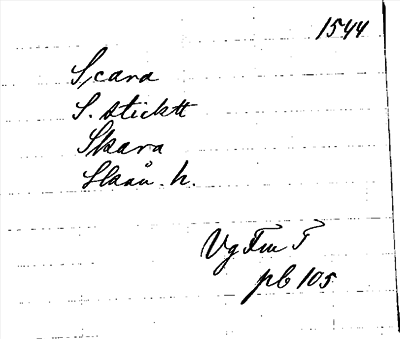 1544
Scara
S. sticktt
Skara
Skån. h.
Vg Fm T
pb 105